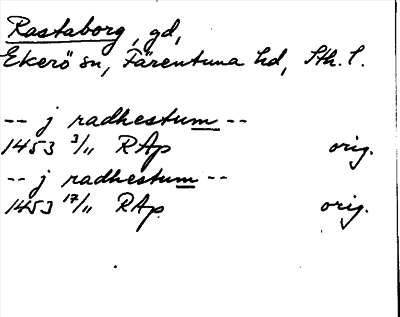 Rastaborg, gd,
Ekerö sn, Färentuna hd, Sth. l.
-- j radhestum --
1453 3/11 RAp orig.
-- j radhestum --
1453 17/11 RAp orig.